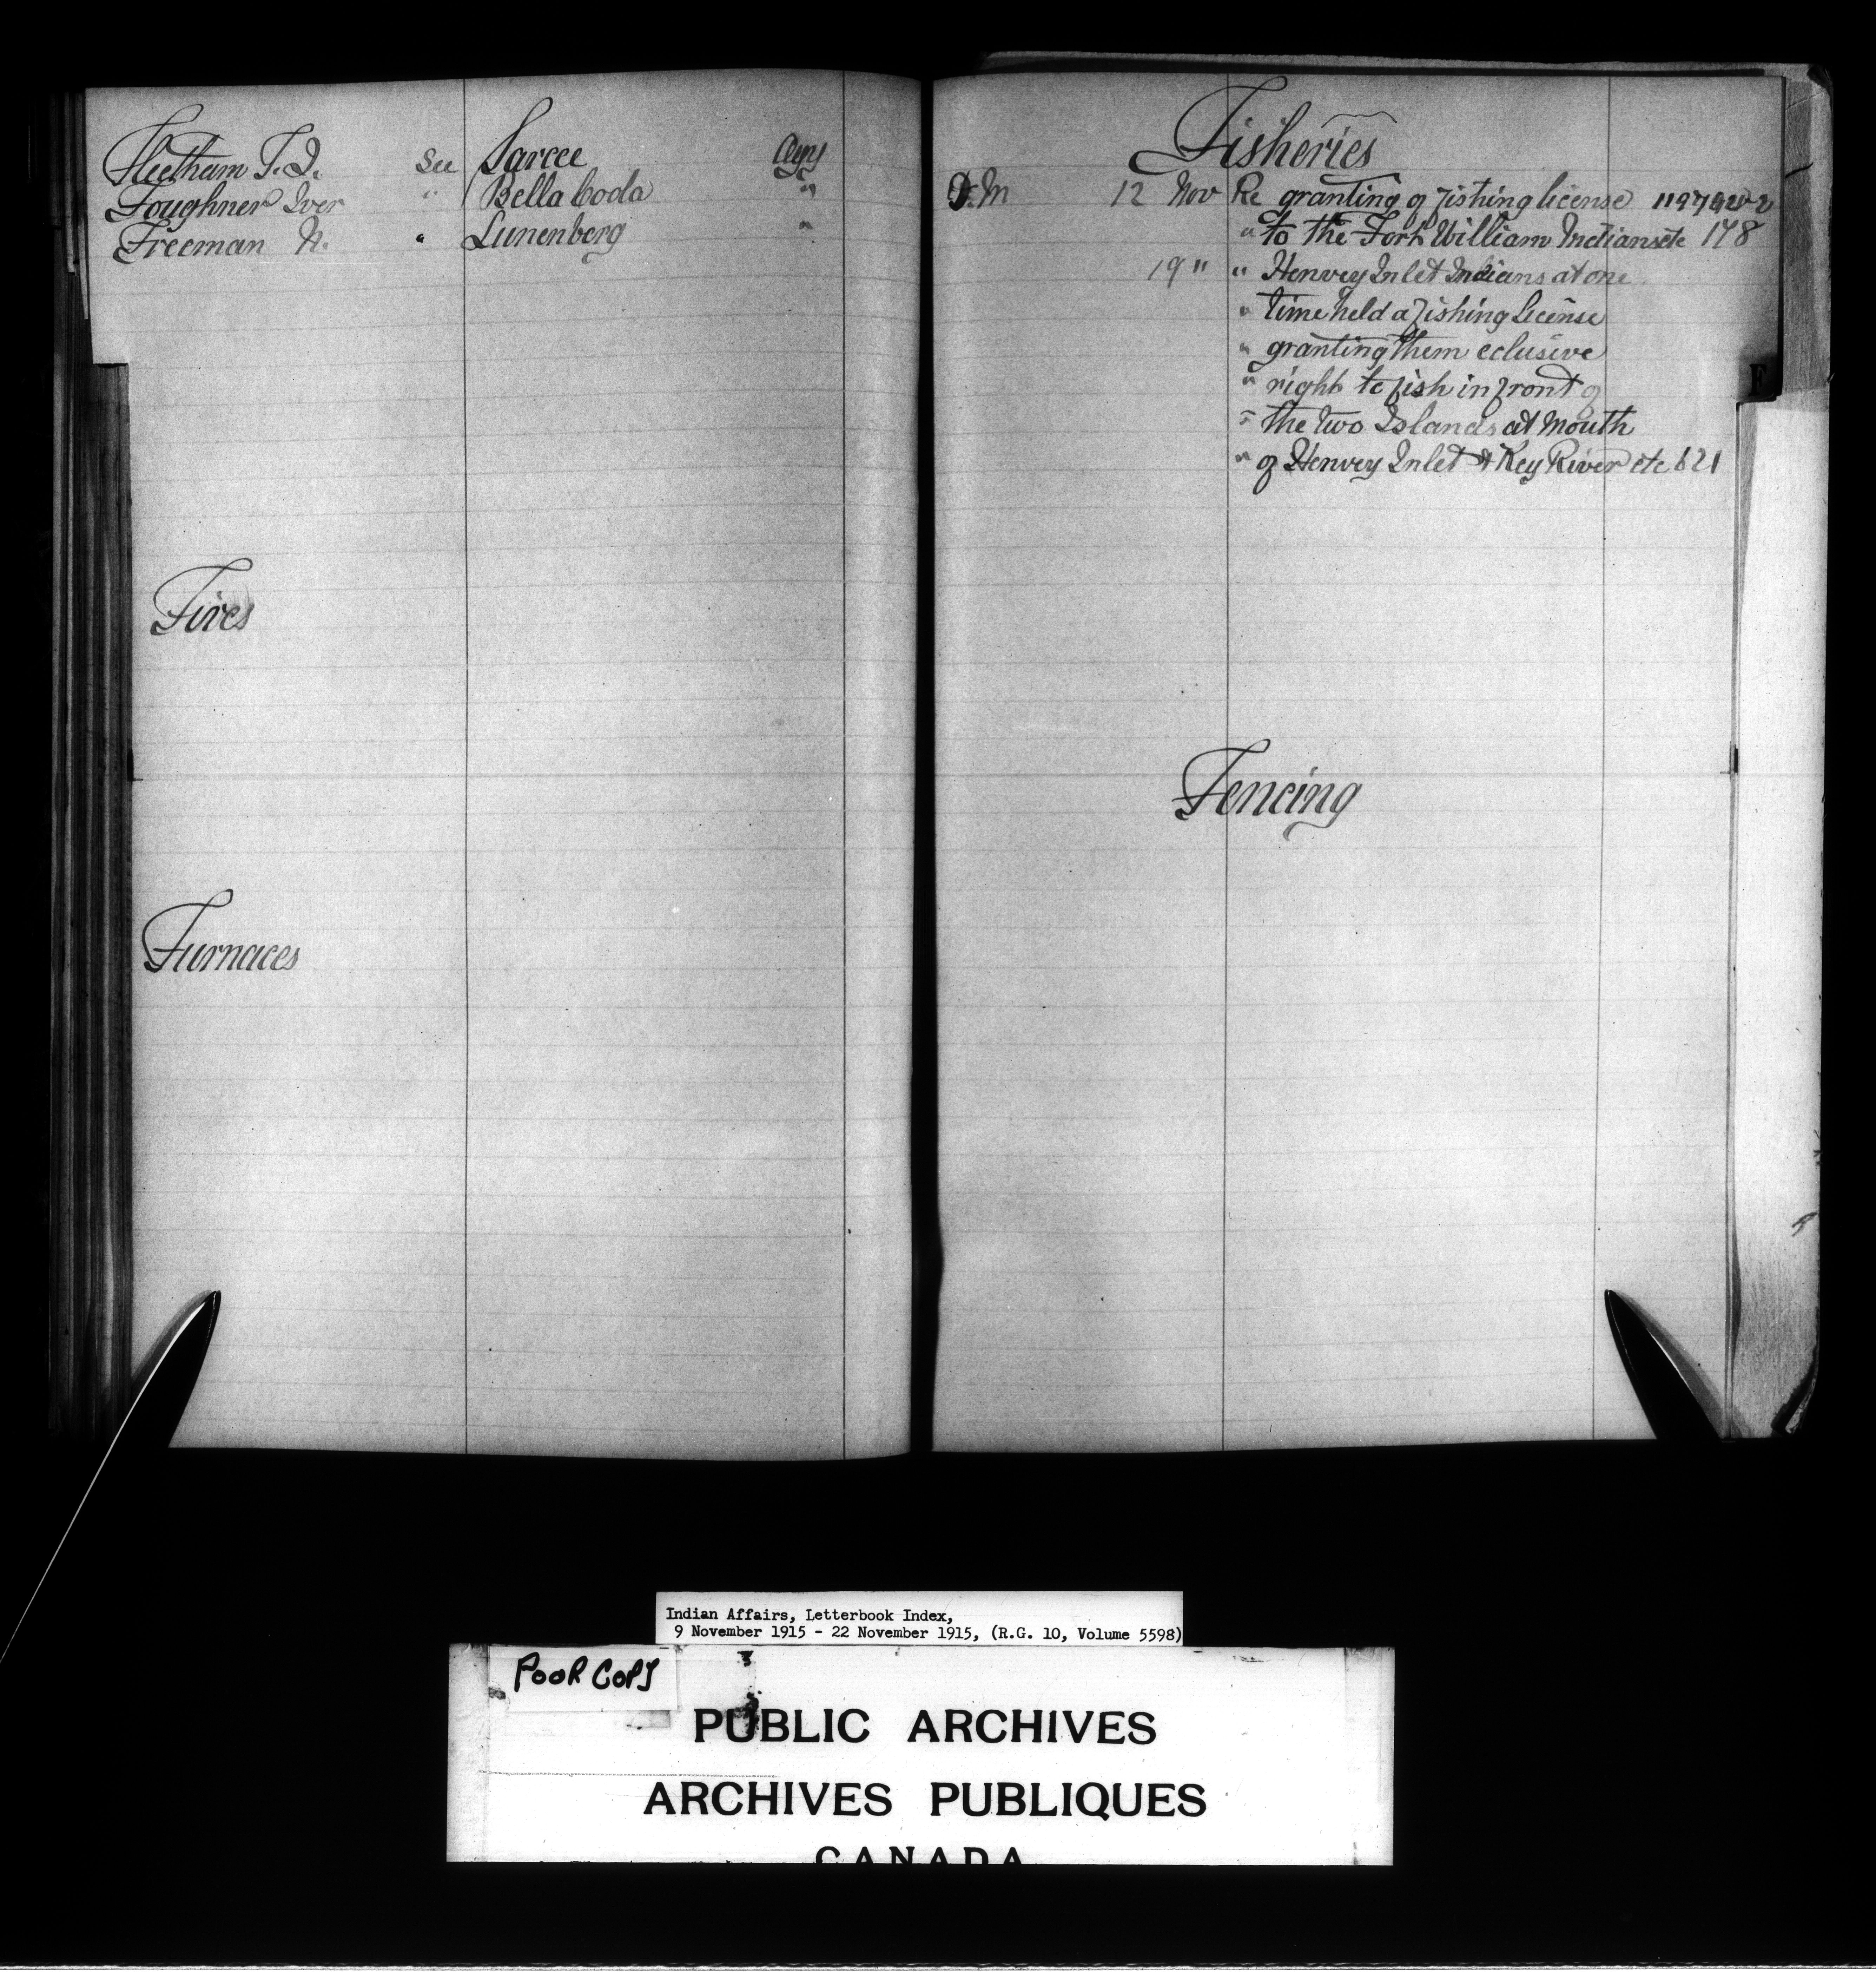 Fleetham T.J. See Sarcee Agy
Foughner Iver " Bella Coola "
Freeman N. " Lunenberg "
Fires
Furnaces
Fisheries
D.M 12 Nov Re granting of fishing license 119749-2
" to the Fort William Indians etc 178
19 " " Henvey Inlet Indians at one
" time held a fishing license
" granting them eclusive
" right to fish in front of
" the two Islands at Mouth
" of Henvey Inlet & Key River etc 621
Fencing
F
Indian Affairs, Letterbook Index,
9 November 1915 - 22 November 1915, (R.G. 10, Volume 5598)
POOR COPY
PUBLIC ARCHIVES
ARCHIVES PUBLIQUES
CANADA